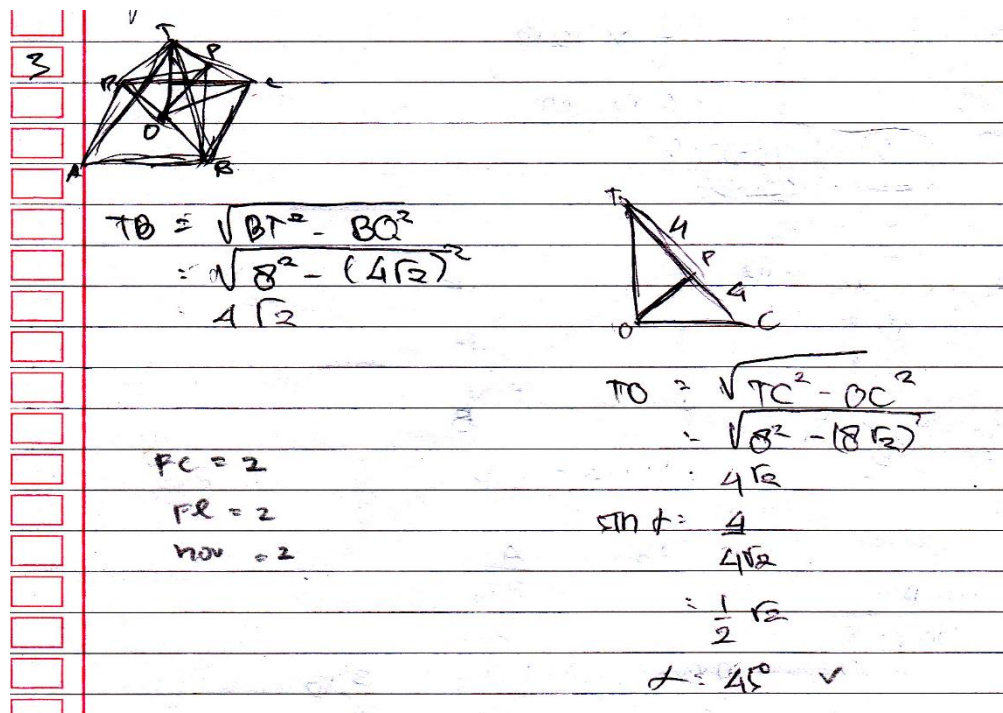 3
T
P
D
C
O
A
B
TB = √BT² - BO²
= √8² - (4√2)²
4√2
T
4
P
4
O
C
TO = √TC² - OC²
= √8² - (8√2)²
4√2
sin α = 4
4√2
= 1/2 √2
α = 45° ✓
FC = 2
FL = 2
nov = 2